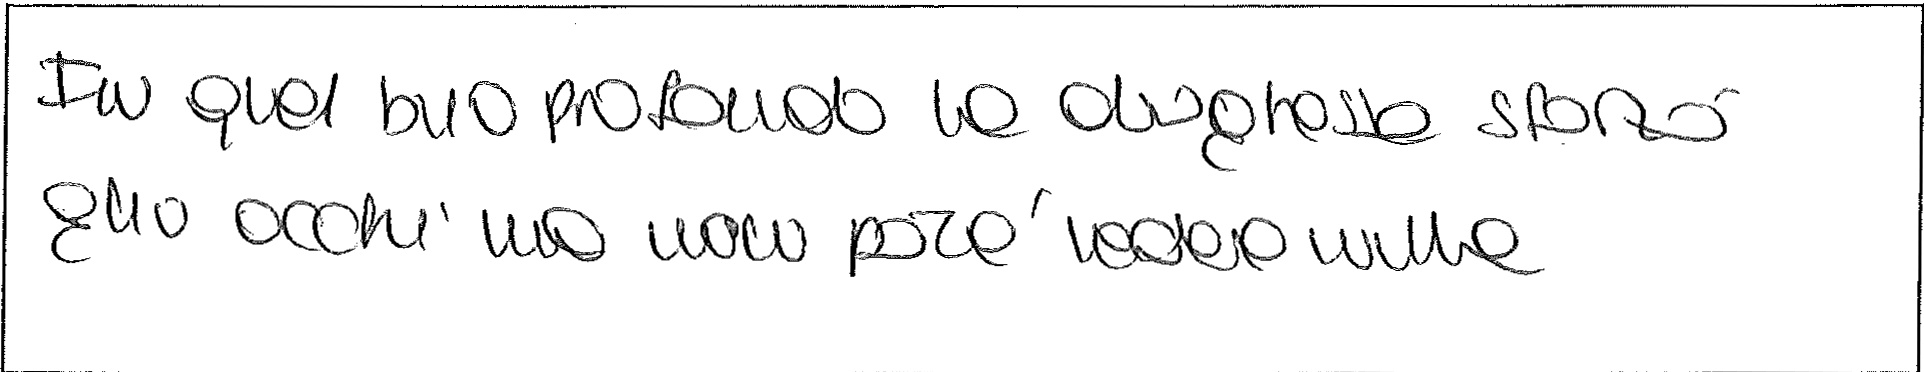 In quel buio profondo la disgraziata sforzò
gli occhi ma non poté vedere nulla